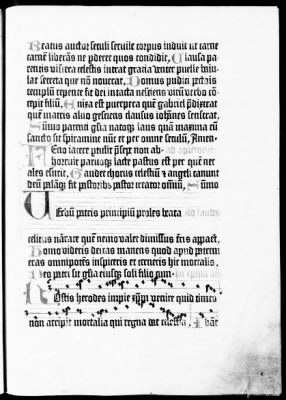 Beatus auctor seculi seruile corpus induit ut carne
carnem liberans ne pderet quos condidit, Clausa pa
rentis viscera celestis intrat gracia venter puelle baiu
lat secreta que nō nouerat, Domus pudici pectoris
templū repente fit dei intacta nesciens virū verbo cō
cepit filiū, Enixa est puerpera quē gabriel pdixerat
quē matris aluo gesciens clausus iohānes senserat,
Summo parenti glia natoqz laus quā maxima cū
sancto sit spiramine nūc et per omne seculū, Amen
Feno iacere ptulit psepe non ab
horruit paruoqz lacte pastus est per quē nec
ales esurit, Gaudet chorus celestiū & angeli canunt
deū palāqz fit pastoribus pastor creator oīnm, Summo
Verbū patris principiū proles beata
celitus
dimissus apparet
Domo videris
manens quod apud
cras omnipotēs inspiceris et cerneris hic mortalis,
Deo patri sit glia eiusqz soli filio cum
Hostis herodes impie xpm venire quid times
non arripit mortalia qui regna dat celestia, Ibāt